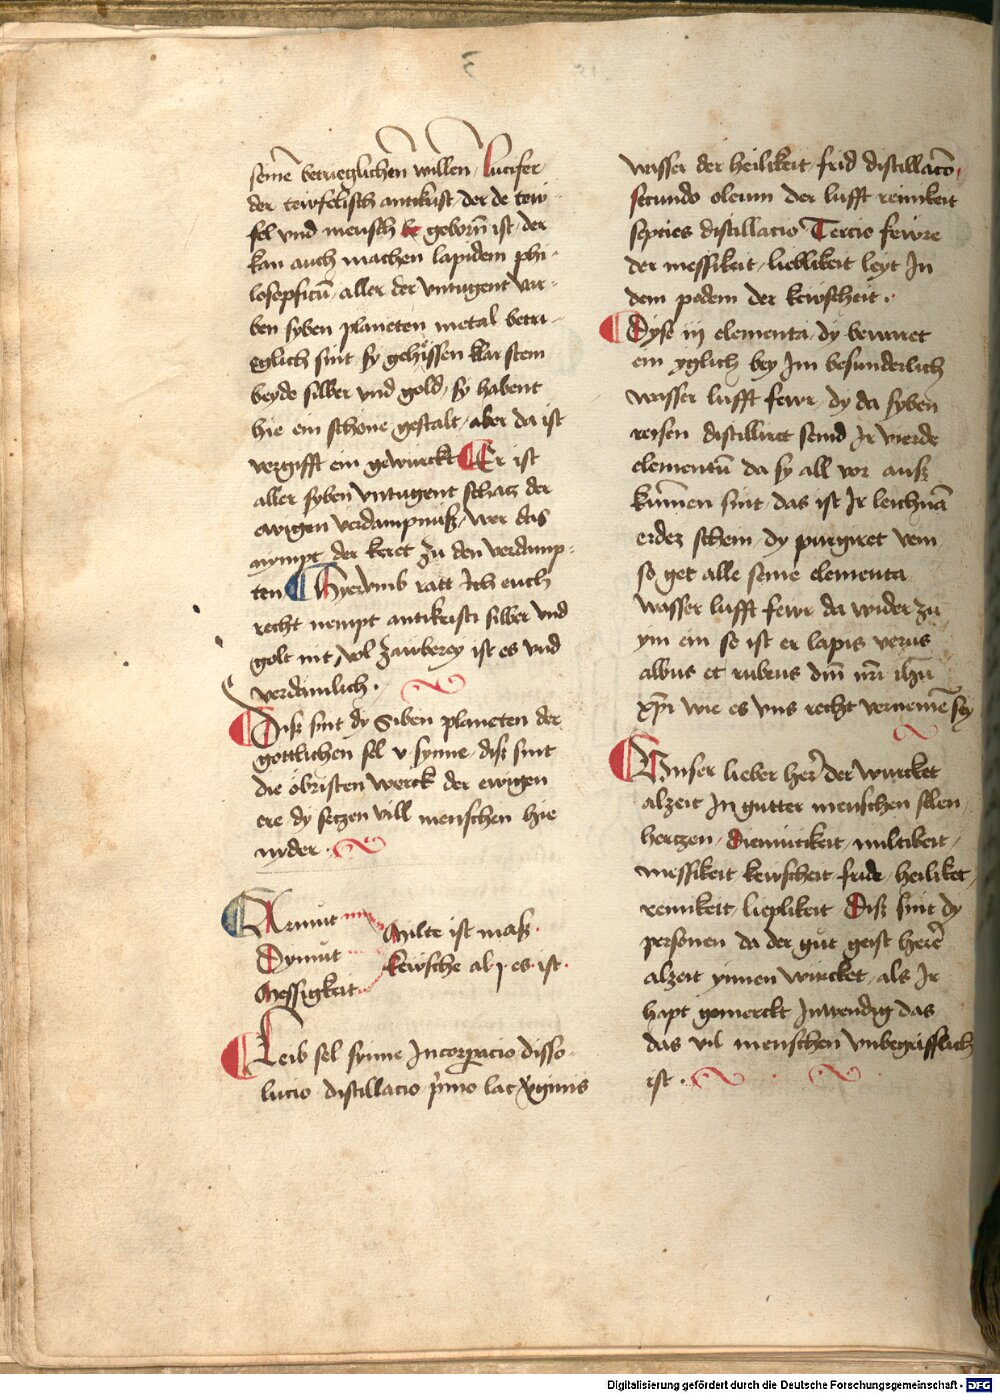 seinē betrieglichen willen / Lucifer
der tewfelisch antikrist / der de tew
fel vnd mensch geborn̄ ist / der
kan auch machen lapidem phi
losopficū / aller der vntugent var
ben syben planeten metal betri
eglich sint sy geheissen klar stein
beyde silber vnd gold / sy habent
hie ein schone gestalt / aber da ist
vergifft ein gewurckt Er ist
aller syben vntugent schacz der
ewigen verdampnuß / wer das
nympt der keret zu den verdamp
ten Hyervmb ratt Ich euch
recht nempt antikristi silber vnd
golt nit / vol zauberey ist es vnd
verdamlich .
Diß sint dy Siben planeten der
gottlichen sel v synne / diß sint
die obristen werck der ewigen
ere dy seczen vill menschen hie
nyder .
Armut Milte ist maß .
Dymut keusche al es ist .
Messigkeit
Leib sel synne Incorpacio disso
lucio distillacio p̄mo lac v̄ginis
wasser der heilikeit frid distillacō
secundo oleum der lufft reinikeit
septies distillacio Tercio fewre
der messikeit / lieblikeit leyt In
dem padem der kewscheit .
Dyse iij elementa dy bewaret
ein yglich bey Im besunderlich
wasser lufft fewr dy da syben
reysen distilliret seind Ir vierde
elementū da sy all vor auß
kūmen sint das ist Ir leichnā
erdez schein dy purgiret vein
so get alle seine elementa
wasser lufft fewr da wider zu
ym ein so ist er lapis verus
albus et rubeus dn̄i nr̄i ih̄u
xp̄i wie es vns recht vernemē sey
Vnser lieber her̄ der wurcket
alzeit In gutter menschen selen
herczen / Diemutikeit / miltikeit /
messikeit kewscheit fride / heiliket
reinikeit / lieplikeit Diß sint dy
personen da der gut geist herē
alzeit ynnen wurcket / als Ir
hapt gemerckt Inwendig das
das vil menschen vnbegriffllich
ist .
Digitalisierung gefördert durch die Deutsche Forschungsgemeinschaft - DFG